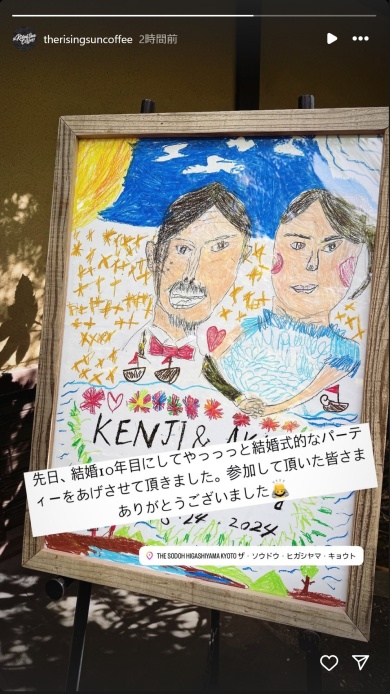 therisingsuncoffee 2時間前
KENJI &
先日、結婚10年目にしてやっっっと結婚式的なパーテ
ィーをあげさせて頂きました。参加して頂いた皆さま
ありがとうございました🙇
24 2024
THE SODOH HIGASHIYAMA KYOTO ザ・ソウドウ・ヒガシヤマ・キョウト